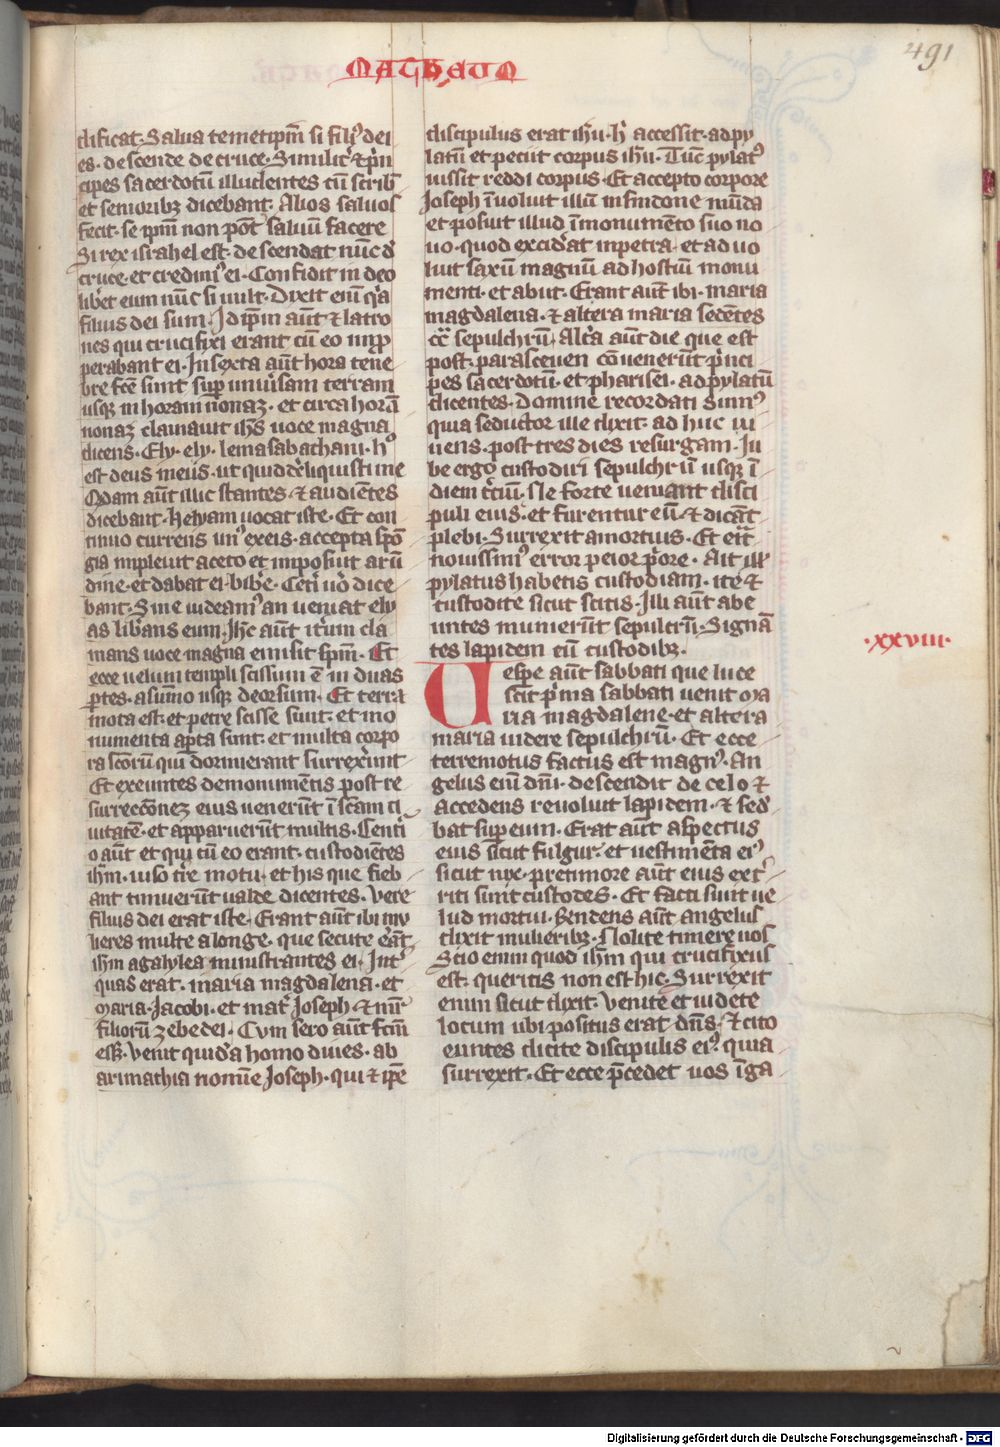 MATHEUM
491
dificat. Salua temetip̄m si fili᷒ dei
es. descende de cruce. Similit᷑ ⁊ p̄n
cipes sacerdotū illudentes cū scrib᷒
et senioribꝫ dicebant. Alios saluos
fecit. se ip̄m non pōt saluum facere
Si rex israhel est. descendat nūc d̄
cruce. et credim᷒ ei. Confidit in deo
lib̄et eum nūc si uult. Dixit enī q᷑a
filius dei sum. Id ip̄m aūt ⁊ latro
nes qui crucifixi erant cū eo imꝓ
perabant ei. In sexta aūt hora tene
bre fc̄e sunt sup̄ uniu᷑sam terram
usqꝫ in horam nonaꝫ. et circa horā
nonaꝫ clamauit ih̄s uoce magna
dicens. Ely. ely. lemasabachani. h᷒
est deus meus. ut quid d̄reliquisti me
Qdam aūt illic stantes ⁊ audiētes
dicebant. helyam uocat iste. Et con
tinuo currens un᷒ ex eis. accepta spō
gia impleuit aceto et imposuit arū
dine. et dabat ei bib̄e. Cet᷑i u᷑o dice
bant. Sine uideam᷒ an ueniat ely
as lib᷑ans eum. Ih̄c aūt it᷑um cla
mans uoce magna emisit sp̄m. Et
ecce uelum templi scissum ē in duas
ꝑtes. a sūmo usqꝫ deorsum. Et terra
mota est. et petre scisse sunt. et mo
numenta aꝑta sunt. et multa corpo
ra sc̄orū qui dormierant surrex᷑unt
Et exeuntes de monumētis post re
surrecc̄onez eius uenerūt ī sc̄am ci
uitatē. et apparuerūt multis. Centi᷑
o aūt et qui cū eo erant. custodiētes
ih̄m. uiso t᷑re motu. et his que fieb
ant timuerūt ualde dicentes. Vere
filius dei erat iste. Erant aūt ibi mu
lieres multe alonge. que secute erāt
ih̄m a galylea ministrantes ei. Int᷑
quas erat. maria magdalena. et
maria. Jacobi. et mat᷑ Joseph ⁊ mr̄
filiorū zebedei. Cum sero aūt fc̄m
eſꝫ. venit quid̄a homo diues. ab
arimathia nomīe Joseph. qui ⁊ ip̄e
discipulus erat ih̄u. h᷒ accessit. ad py
latū et peciit corpus ih̄u. Tūc pylat᷒
iussit reddi corpus. Et accepto corpore
Joseph īuoluit illū in sindone mūda
et posuit illud ī monumēto suo no
uo. quod excid᷑at in petra. et aduo
luit saxū magnū ad hostiū monu
menti. et abiit. Erant aūt ibi. maria
magdalena. ⁊ altera maria sedētes
cc̄ sepulchrū. Alt᷑a aūt die que est
post. parasceuen cō uenerūt p᷑nci
pes sacerdotū. et pharisei. ad pylatū
dicentes. Domine recordati sum᷒
quia seductor ille dixit. ad huc ui
uens. post tres dies resurgam. Iu
be ergo custodiri sepulchrū usqꝫ ī
diem t᷑ciū. Ne forte ueniant disci
puli eius. et furentur eū. ⁊ dicāt
plebi. Surrexit a mortuis. Et erit̄
nouissim᷒ error peior p᷑ore. Ait ill᷒
pylatus habetis custodiam. ite ⁊
custodite sicut scitis. Illi aūt abe
untes munierūt sepulcrū. Signā
tes lapidem cū custodibꝫ.
·xxviii·
Uesꝑe aūt sabbati que luce
scit p᷑ma sabbati uenit ma
ria magdalene. et altera
maria uidere sepulchrū. Et ecce
terremotus factus est magn᷒. An
gelus enī dn̄i. descendit de celo ⁊
accedens reuoluit lapidem. ⁊ sed᷑
bat suꝑ eum. Erat aūt aspectus
eius sicut fulgur. et uestimēta ei᷒
sicut nyx. pre timore aūt eius ext᷑
riti sunt custodes. Et facti sunt ue
lud mortui. Rn̄dens aūt angelus
dixit mulieribꝫ. Nolite timere uos
Scio enim quod ih̄m qui crucifixus
est. queritis non est hic. Surrexit
enim sicut dixit. venite et uidete
locum ubi positus erat dn̄s. ⁊ cito
euntes dicite discipulis ei᷒. quia
surrexit. Et ecce p̄cedet uos ī ga
Digitalisierung gefördert durch die Deutsche Forschungsgemeinschaft - DFG